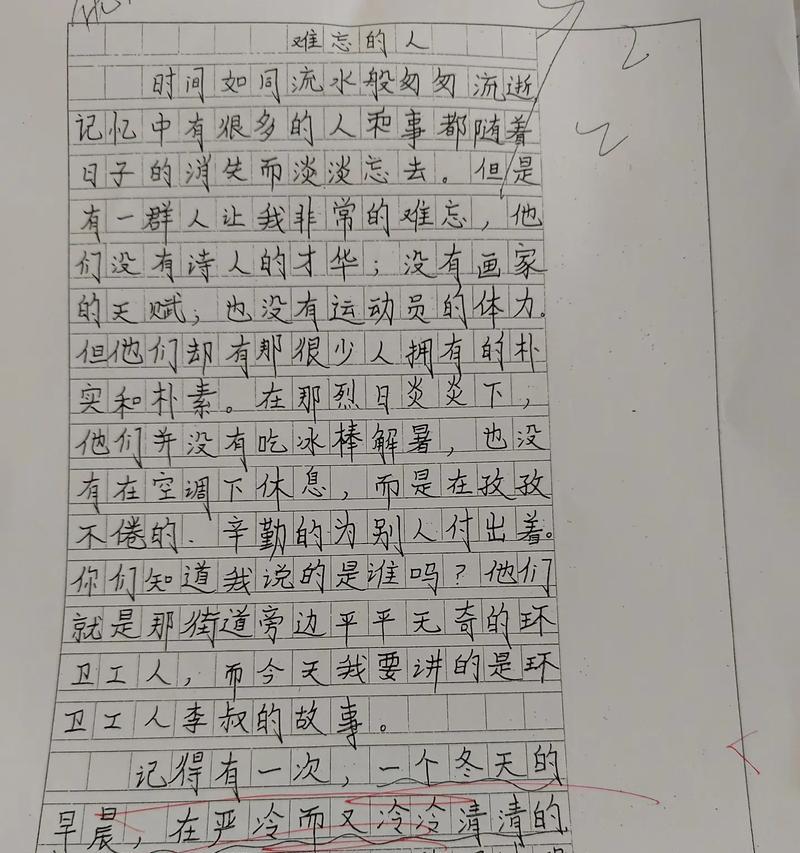 难忘的人
时间如同流水般匆匆流逝
记忆中有很多的人和事都随着
日子的消失而淡淡忘去。但是
有一群人让我非常的难忘，他
们没有诗人的才华；没有画家
的天赋；也没有运动员的体力。
但他们却有那很少人拥有的朴
实和朴素。在那烈日炎炎下，
他们并没有吃冰棒解暑，也没
有在空调下休息，而是在孜孜
不倦的、辛勤的为别人付出着。
你们知道我说的是谁吗？他们
就是那街道旁边平平无奇的环
卫工人，而今天我要讲的是环
卫工人李叔的故事。
记得有一次，一个冬天的
早晨，在严冷而又冷冷清清的